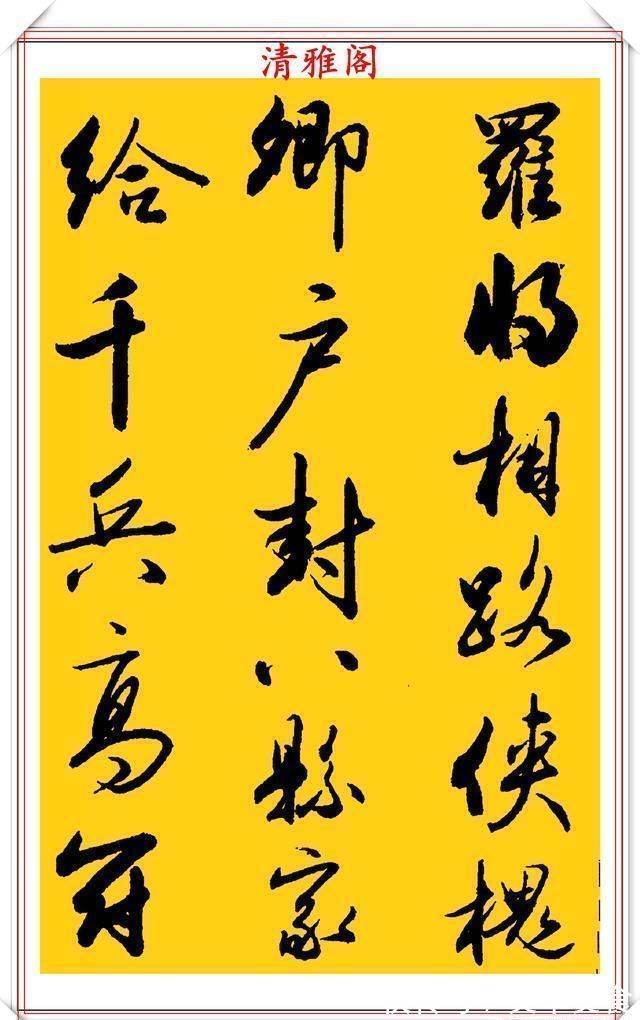 清雅阁
羅將相路俠槐
卿户封八縣家
給千兵高冠